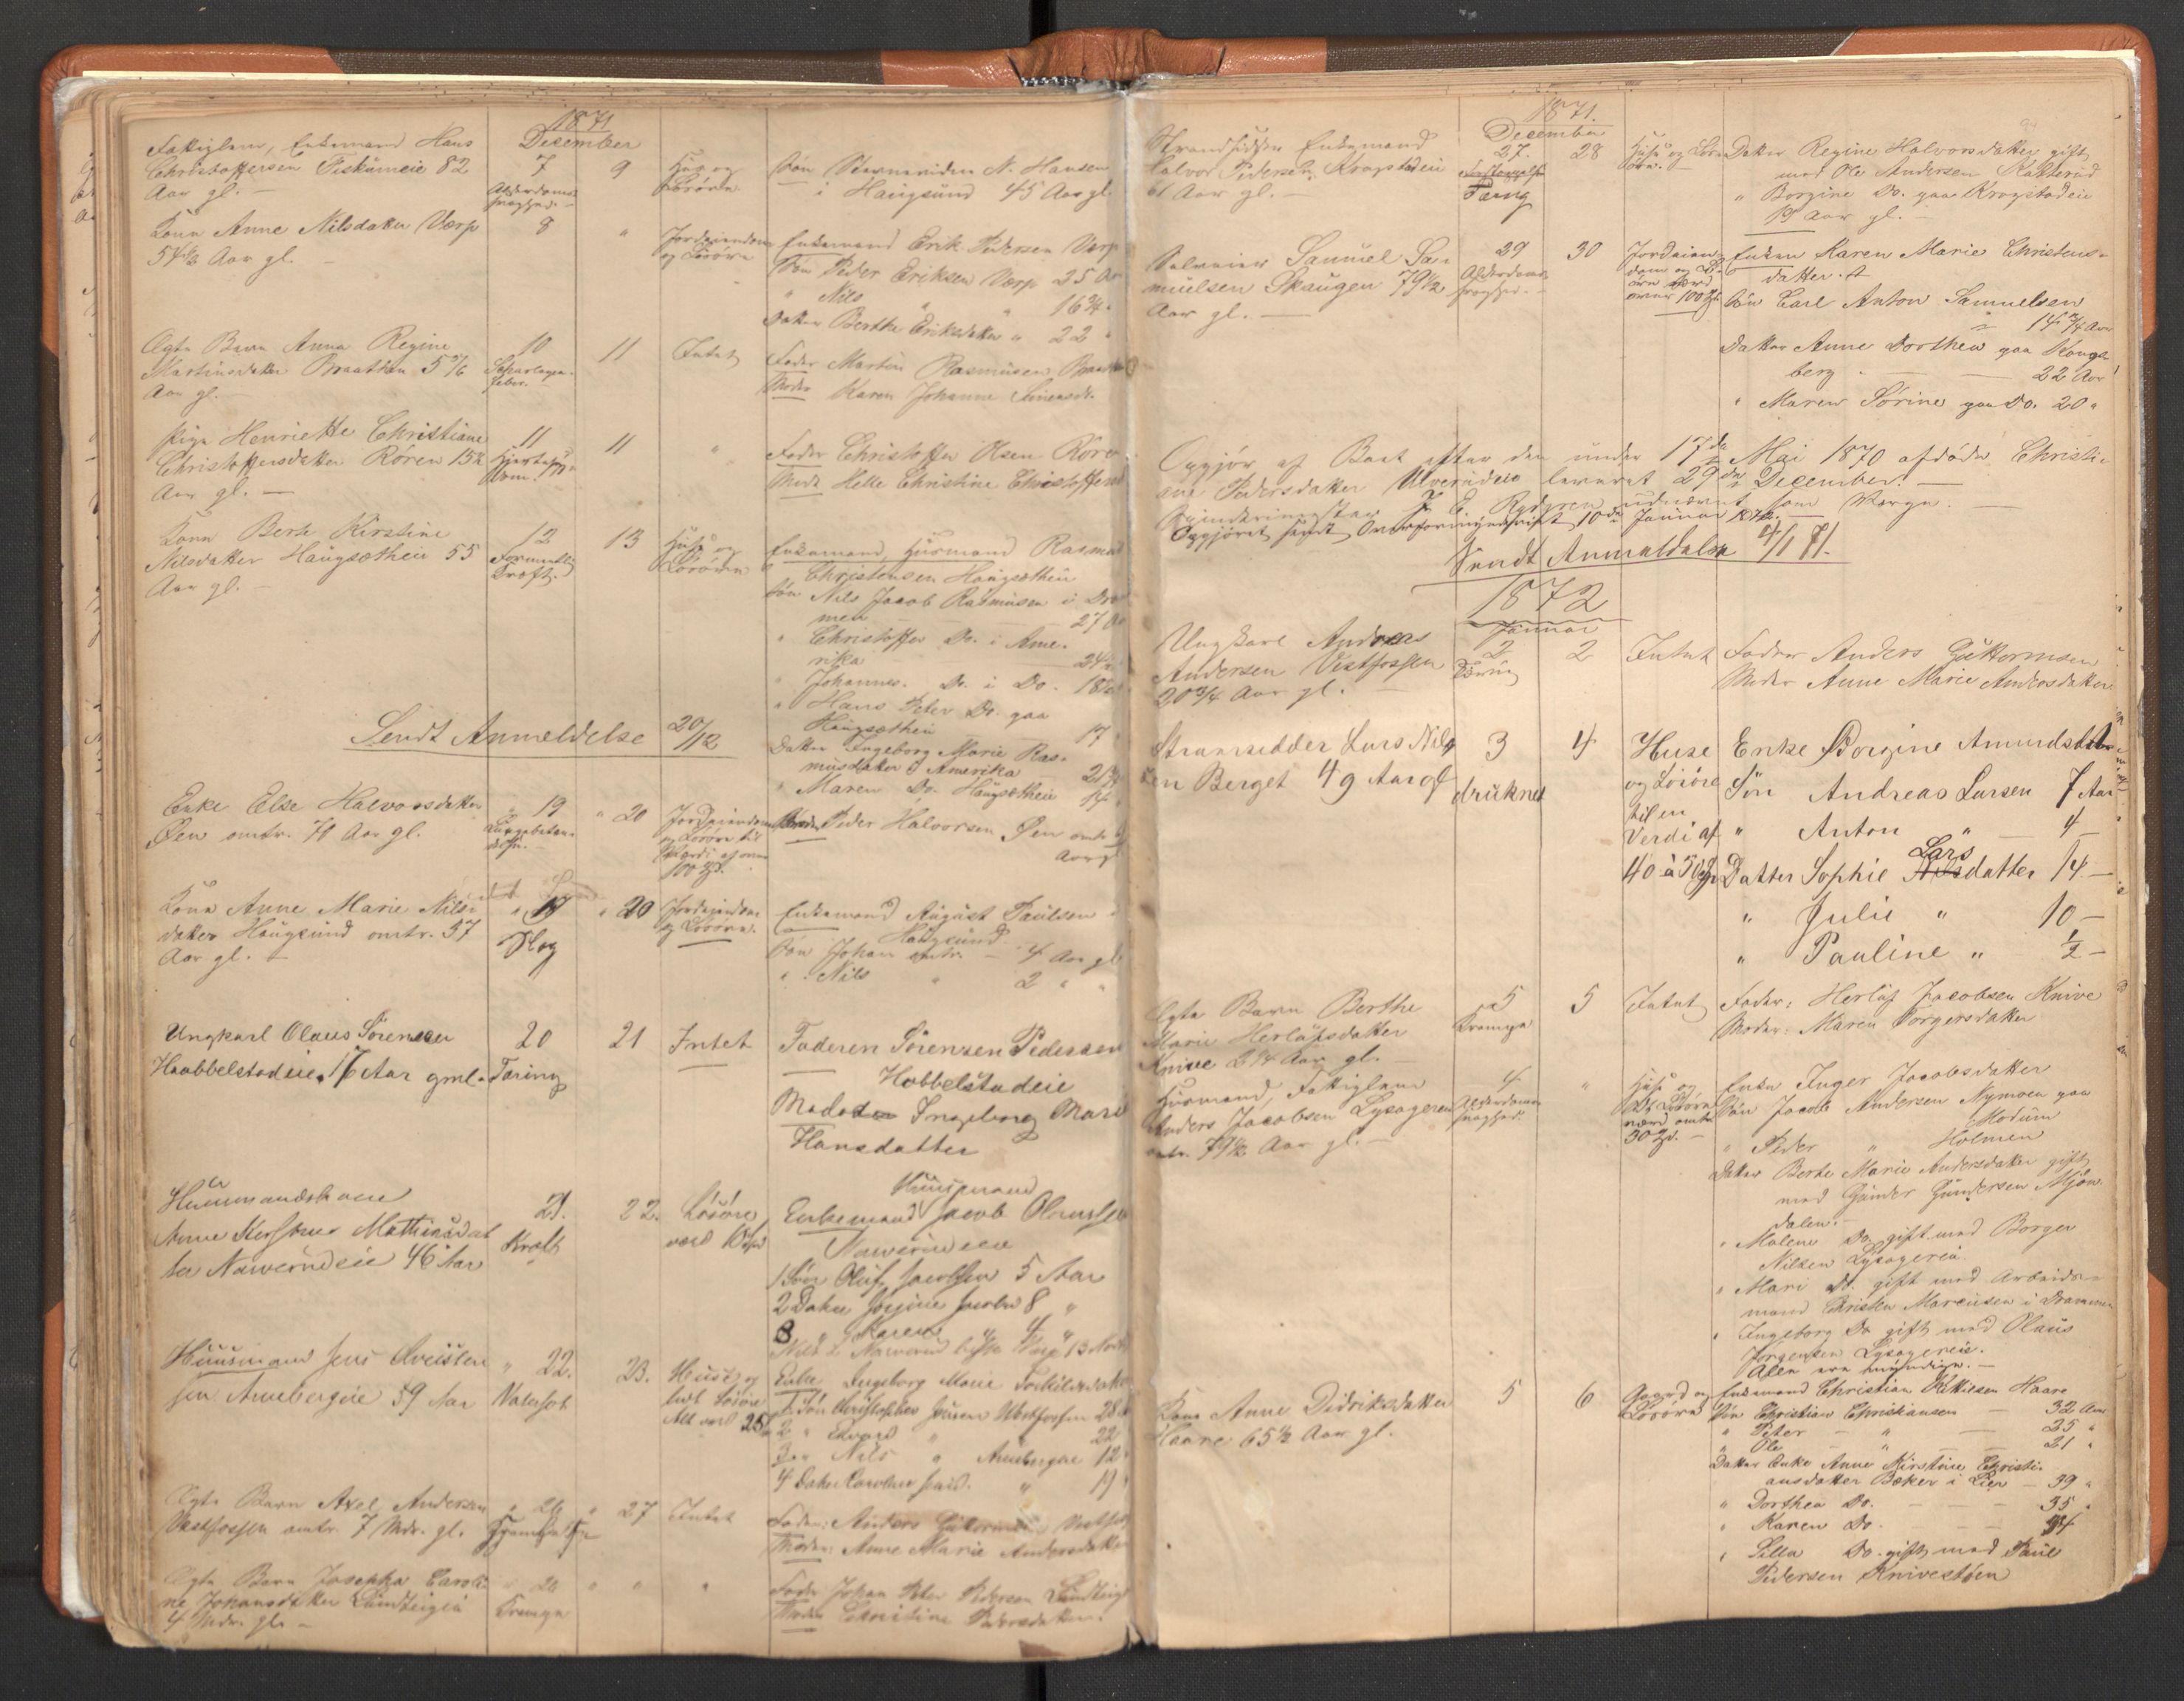 1871
December
Fattiglem, Enkemand Hans
Christoffersen Fiskumeie 82
Aar gl. —
7
Alderdoms
svaghed. —
9
Huse og
Løsøre
Søn N. Hansen
i Haugsund 45 Aar gl.
Kona Anne Nilsdatter Værp
54½ Aar gl. —
8
"
Jordeiendom
og Løsøre
Enkemand Erik Pedersen Værp
Søn Peder Eriksen Værp 25 Aar
" Nils " " 16¾ "
Datter Berthe Eriksdatter " 22 "
Ægte Barn Anna Regine
Martinsdatter Braathen 5 5/6
Aar gl. —
10
Scharlagen-
feber.
11
Intet
Fader Martin Rasmusen Braathen
Moder Karen Johanne Simensdr.
Pige Henriette Christiane
Christoffersdatter Røren 15½
Aar gl. —
11
11
"
Fader Christoffer Olsen Røren
Moder Helle Christine Christoffersd
Kona Berte Kirstine
Nilsdatter Haugsætheie 55
Aar gl. —
12
Formentlig
Kræft.
13
Huse og
Løsøre
Enkemand, Husmand Rasmus
Christensen Haugsætheie
Søn Nils Jacob Rasmusen i Dra
men — 27 Aar
" Christoffer Do. i Ame-
rika — 24½
" Johannes Do. i Do. 18½
" Hans Peter Do. paa
Haugsætheie — 17 "
Datter Ingeborg Marie Ras-
musdatter i Amerika — 21¾
" Maren Do. Haugsætheie 14 "
Sendt Anmeldelse 20/12
Enke Else Halvorsdatter
Øen omtr. 71 Aar gl.
" 19
Lungebetæn-
delse. —
" 20
Jordeiendom
og Løsøre til
Værdi af over
100 Spd.
Broder Peder Halvorsen Øen omtr
Aar gl
Kona Anne Marie Nils-
datter Haugsund omtr. 37
Aar gl. —
" 17
Slag
" 20
Jordeiendom
og Løsøre.
Enkemand August Paulsen i
Haugsund
Søn Johan omtr. — 4 Aar gl.
" Nils " 2 " "
Ungkarl Olaus Sørensen
Haabbelstadeie, 17 Aar gml.
20
Tæring
21
Intet
Faderen Sørensen Pedersen
Hobbelstadeie
Moderen Ingeborg Mari
Hansdatter
Huusmandskone
Anne Kirstine Mathiasdat
ter Narverudeie 46 Aar
21.
Kræft
22.
Løsøre
værd 10 Spd
Huusmand
Enkemand Jacob Olausen
Narverudeie
1 Søn Oluf Jacobsen 5 Aar
2 Datter Jørgine Jacobsd 8 "
3 " Karen " 4 "
Huusmand Jens Aveisten
sen Arnebergeie 59 Aar
" 22.
Vatersot
23.
Huse og
lidt Løsøre
Alt værd 25
Enke Ingeborg Marie Torkildsdatter
1 Søn Christopher Jensen Westfossen 28
2 " Edvard " 22
3 " Nils " Arnebergeie 12
4 Datter Karoline Jensd. " 19
Ægte Barn Axel Andersen
Vestfossen omtr. 7 Mdr. gl.
" 26
"
27
Intet
Fader: Anders Guttormsen Vestfos
Moder: Anne Marie Andersdatter
Ægte Barn Josepha Caroli-
ne Johansdatter Sundteigen
4 Mdr. gl. —
" 26
Krampe
" "
"
Fader Johan Peter Pedersen Sundteig
Moder Christine Pedersdatter.
1871.
December
Strandsidder Enkemand
Halvor Pedersen Krogstadeie
61 Aar gl. —
27.
Tæring
28
Huse og Løs-
øre. —
Datter Regine Halvorsdatter gift
med Ole Andersen Katterud
" Borgine Do. paa Krogstadeie
19 Aar gl. —
Selveier Samuel Sa-
muelsen Skaugen 79½
Aar gl. —
29
Alderdoms
svaghed. —
30
Jordeien-
dom og Løs-
øre værd
over 100 Spd.
Enken Karen Marie Christens-
datter. —
Søn Carl Anton Samuelsen
14¾ Aar
Datter Anne Dorthea paa Kongs-
berg — — 22 Aar
" Maren Sørine paa Do. 20 "
Opgjør af Boet efter den under 17de Mai 1870 afdøde Christi-
ane Pedersdatter Ulverudeie leveret 29de December. —
udnævnt som Værge. —
Opgjøret sendt Overformynderiet 10de Januar 1872.
Sendt Anmeldelse 4/1 71.
1872
Januar
Ungkarl Andreas
Andersen Vestfossen
20¾ Aar gl.
2
Tæring
2
Intet
Fader Anders Guttormsen
Moder Anne Marie Andersdatter
Stransidder Lars Nils
sen Berget 49 Aar gl
3
druknet
4
Huse
og Løsøre
til en
Verdi af
40 à 50 Spd
Enke Borgine Amundsdatter
Søn Andreas Larsen 7 Aar
" Anton " — 4 —
Datter Sophie Larsdatter 14 —
" Julie " 10 —
" Pauline " ½ —
Ægte Barn Berthe
Marie Herlufsdatter
Knive 2¼ Aar gl. —
5
Krampe
5
Intet
Fader: Herluf Jacobsen Knive
Moder: Maren Børgersdatter
Husmand, Fattiglem
Anders Jacobsen Lysageren
omtr. 77½ Aar gl. —
4
Alderdoms
svaghed.
"
Huse og
lidt Løsøre
værd omtr
30 Spd. —
Enke Inger Jacobsdatter
Søn Jacob Andersen Nymoen paa
Modum
" Peder " Holmen
Datter Berte Marie Andersdatter gift
med Gunder Gundersen Mjøn-
dalen. —
" Malene Do. gift med Borger
Nilsen Lysagereie
" Mari Do. gift med Arbeids-
mand Christen Marcusen i Drammen
" Ingeborg Do. gift med Olaus
Jørgensen Lysagereie.
Alle ere myndige. —
Kona Anne Didriksdatter
Haare 65½ Aar gl.
5
6
Gaard og
Løsøre
Enkemand Christian Kittilsen Haare
Søn Christian Christiansen — 32 Aar
" Peter — " — 25 "
" Ole — " — 21 "
Datter Enke Anne Kirstine Christi-
ansdatter Bæker i Lier — 39 "
" Dorthea Do. — — 35 "
" Karen Do. — —
" Lilla Do. gift med Paul
Pedersen Knivestøen